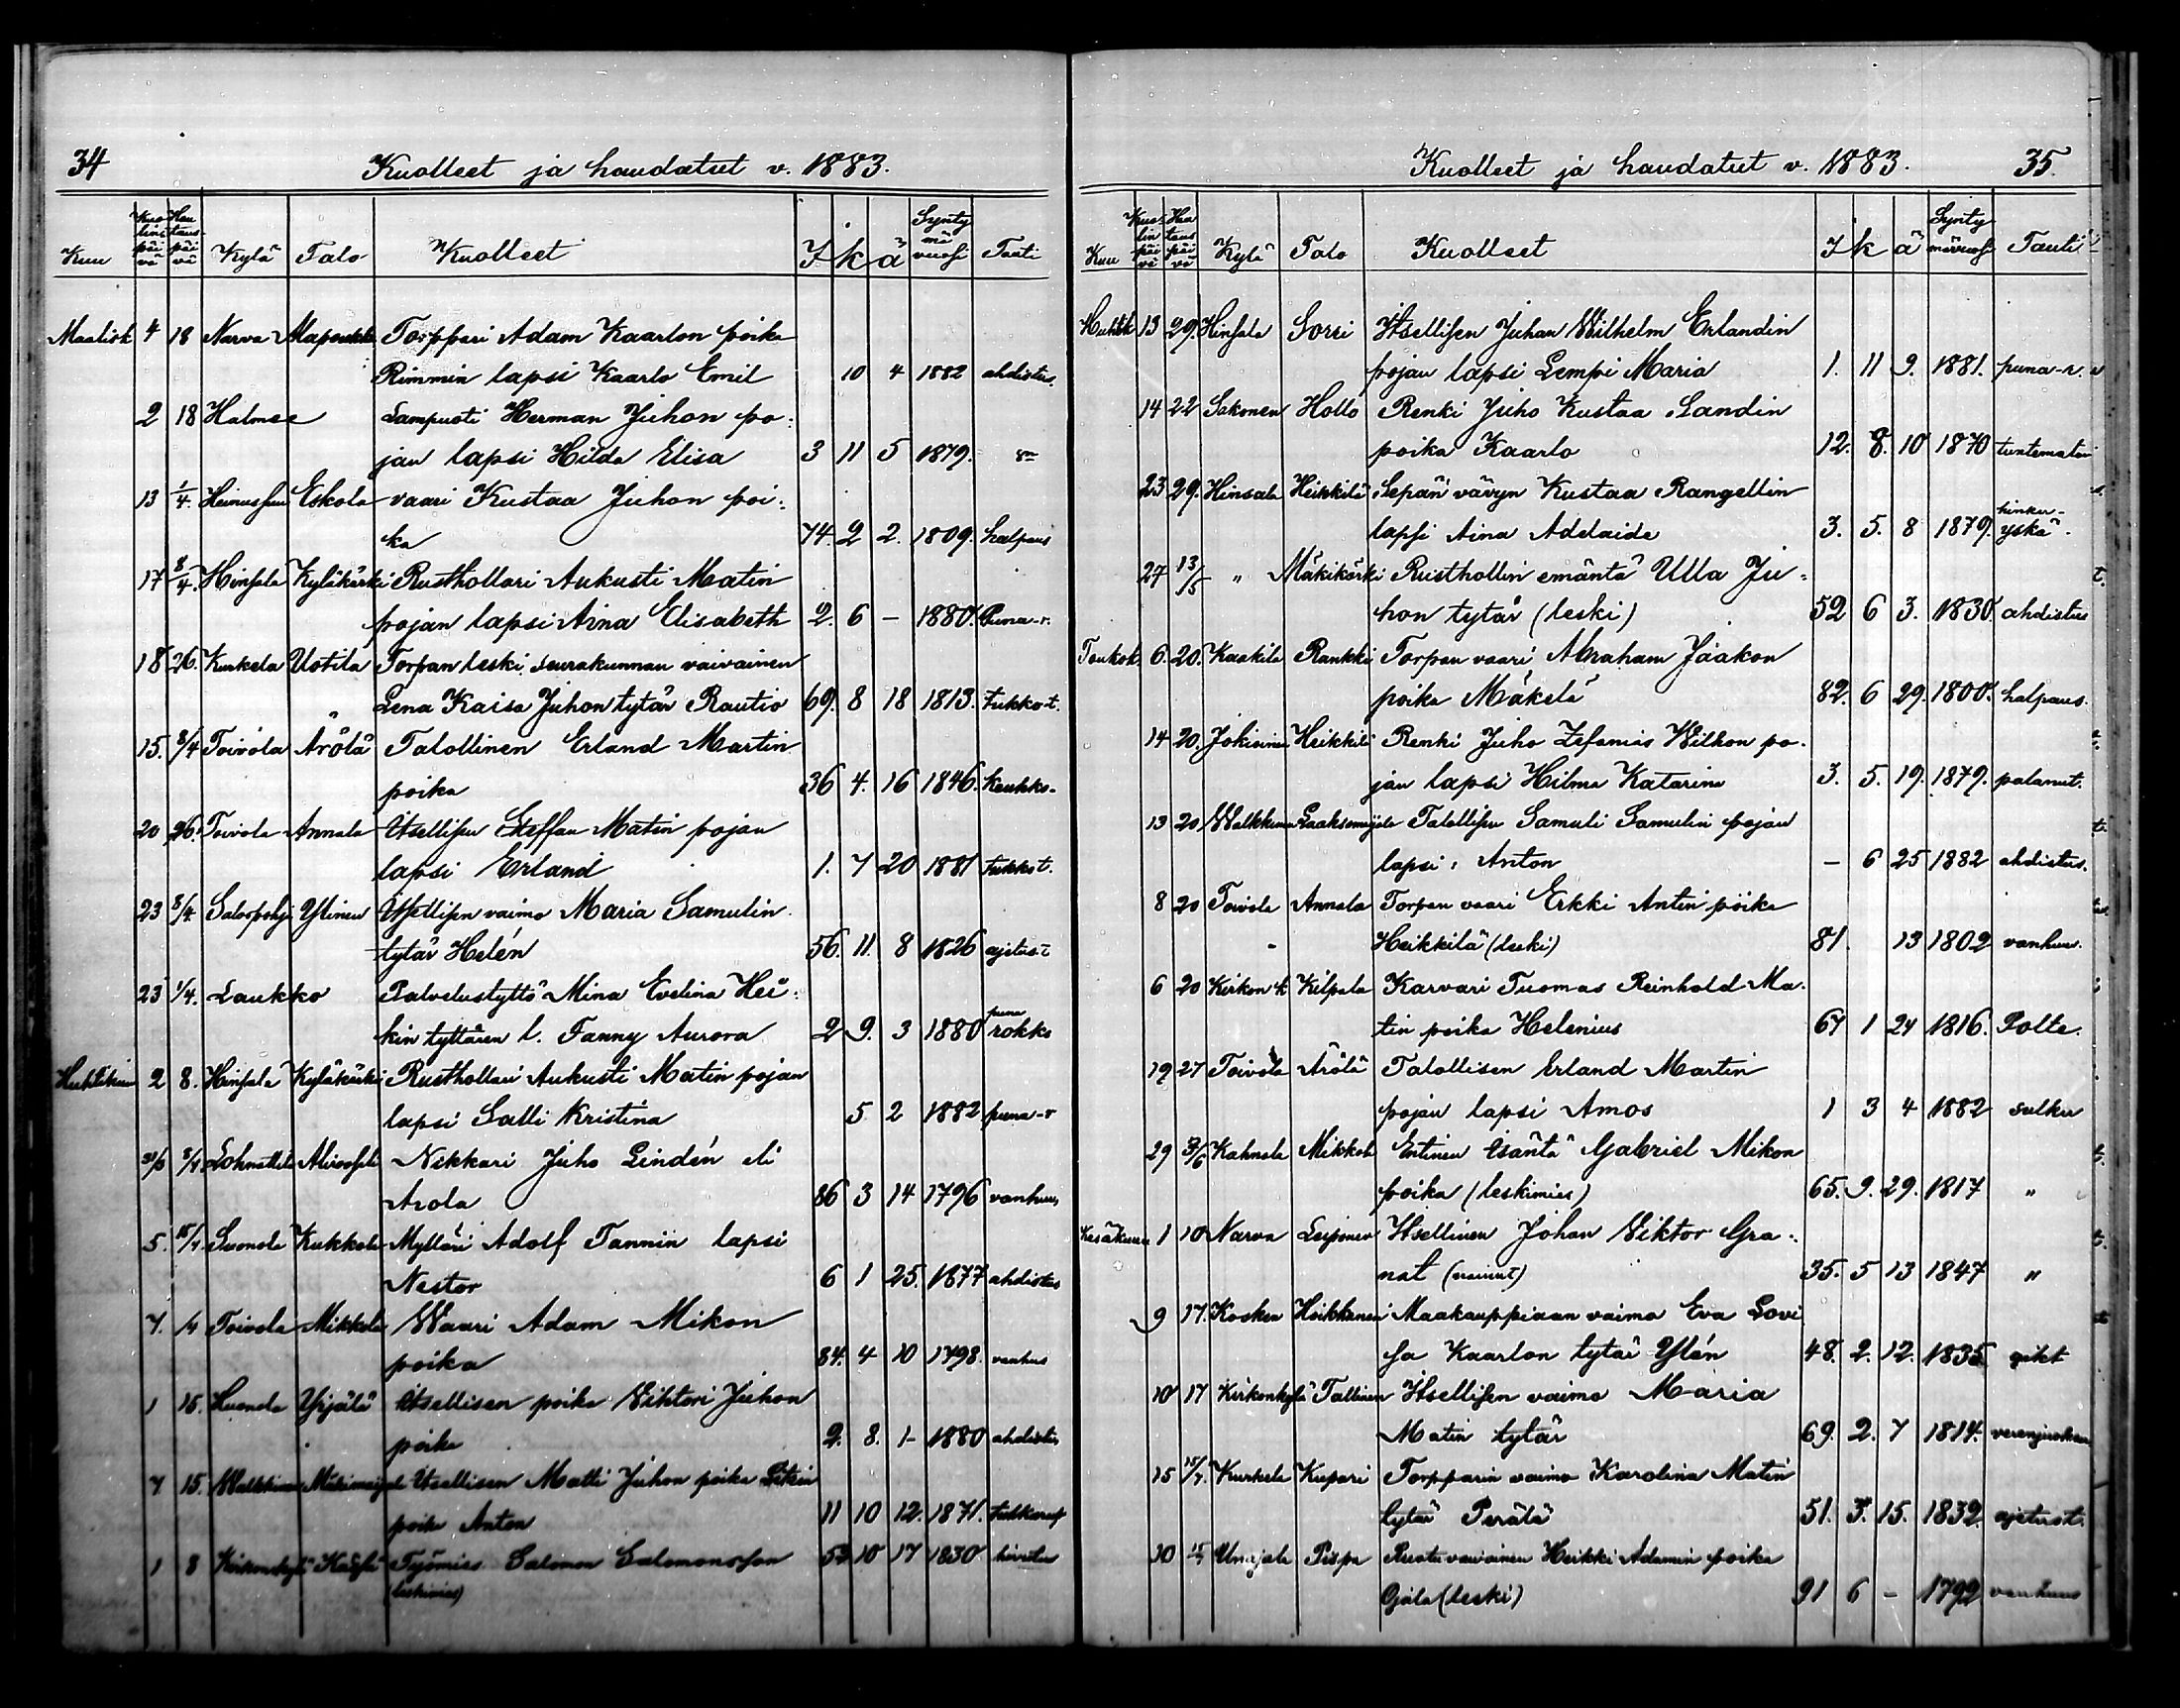 34
Kuolleet ja haudatut v. 1883.
Kuu Kuolinpäivä Hautauspäivä Kylä Talo Kuolleet I k ä Syntymävuosi Tauti
Maalisk 4 18 Narva Torppari Adam Kaarlon poika
Rimmin lapsi Kaarlo Emil 10 4 1882 ahdistus.
2 18 Halmee Lampuoti Herman Juhon po-
jan lapsi Hilda Elisa 3 11 5 1879.
13 1/4. Eskola vaari Kustaa Juhon poi-
ka 74. 2 2. 1809. halpaus
17 8/4. Hinsala Kyläkärki Rusthollari Aukusti Matin
pojan lapsi Aina Elisabeth 2. 6 – 1880. Puna-r.
18 26. Kurkela Uotila Torpan leski, seurakunnan vaivainen
Lena Kaisa Juhon tytär Rautio 69. 8 18 1813. tukko-t.
15. 8/4 Toivola Arölä Talollinen Erland Martin
poika 36 4. 16 1846. keuhko-
20 26. Toivola Annala Itsellisen Steffan Matin pojan
lapsi Erland 1. 7 20 1881 tukkot.
23 8/4. Ylinen Itsellisen vaimo Maria Samulin
tytär Helén 56. 11. 8 1826 ajetus-t
23 1/4. Laukko Palvelustyttö Mina Evelina Hei-
kin tyttären l. Fanny Aurora 2 9. 3 1880 puna rokko
Huhtikuu 2 8. Hinsala Kyläkärki Rusthollari Aukusti Matin pojan
lapsi Salli Kristina 5 2 1882 puna-r
8/4 Nikkari Juho Lindén eli
Arola 86 3 14 1796 vanhuus
5. 15/4 Suonola Kukkola Mylläri Adolf Tannin lapsi
Nestor 6 1 25. 1877 ahdistus
7. Toivola Mikkola Waari Adam Mikon
poika 84. 4 10 1798. vanhus
1 15. Yrjälä Itsellisen poika Viktori Juhon
poika 2. 8. 1- 1880 ahdistus
7 15. Itsellisen Matti Juhon poika
poika Anton 11 10 12. 1871.
1 8 Kirkonkylä Työmies Salomon Salomonsson 10 17 1830
(leskimies)
Kuolleet ja haudatut v. 1883. 35.
Kuu Kuolinpäivä Hautauspäivä Kylä Talo Kuolleet I k ä Syntymävuosi Tauti
Huhtik 13 29. Hinsala Sorri Itsellisen Juhan Wilhelm Erlandin
pojan lapsi Lempi Maria 1. 11 9. 1881. puna-r.
14 22 Sakonen Hollo Renki Juho Kustaa Landin
poika Kaarlo 12. 8. 10 1870 tuntematon
23 29. Hinsala Heikkilä Sepän vävyn Kustaa Rangellin
lapsi Aina Adelaide 3. 5. 8 1879. hinku-yskä.
27 13/5 " Mäkikärki Rusthollin emäntä Ulla Ju-
hon tytär (leski) 52 6 3. 1830. ahdistus
Toukok. 6. 20. Kaakila Rankki Torpan vaari Abraham Jaakon
poika Mäkelä 82. 6 29. 1800. halpaus.
14 20. Jokioinen Heikkilä Renki Juho Zefanias Wilhon po-
jan lapsi Hilma Katarina 3. 5. 19. 1879. palanut.
13 20 Talollisen Samuli Samulin pojan
lapsi, Anton – 6 25 1882 ahdistus.
8 20 Toivola Annala Torpan vaari Erkki Antin poika
Heikkilä (leski) 81. 13 1802 vanhuus.
6 20 Kirkon k Kilpala Karvari Tuomas Reinhold Ma-
tin poika Helenius 67 1 24 1816. Polte.
19 27 Toivola Ärölä Talollisen Erland Martin
pojan lapsi Amos 1 3 4 1882 sulku
29 3/6 Kahnola Mikkola Entinen isäntä Gabriel Mikon
poika (leskimies) 65. 9. 29. 1817 "
Kesäkuu 1 10 Narva Leiponen Itsellinen Johan Viktor Gra-
nat (nainut) 35. 5 13 1847 "
9 17. Kosken Heikkanen Maakauppiaan vaimo Eva Lovi
sa Kaarlon tytär Ylén 48. 2. 12. 1835. gikt
10 17 Kirkonkylä Tallinen Itsellisen vaimo Maria
Matin tytär 69. 2. 7 1814. verenjuoksu
15 15/7. Kurkela Kupari Torpparin vaimo Karolina Matin
tytär Perälä 51. 3. 15. 1832. ajetust.
10 Urajala Pispa Ruotuvaivainen Heikki Adamin poika
Ojala (leski) 91 6 – 1792 vanhuus